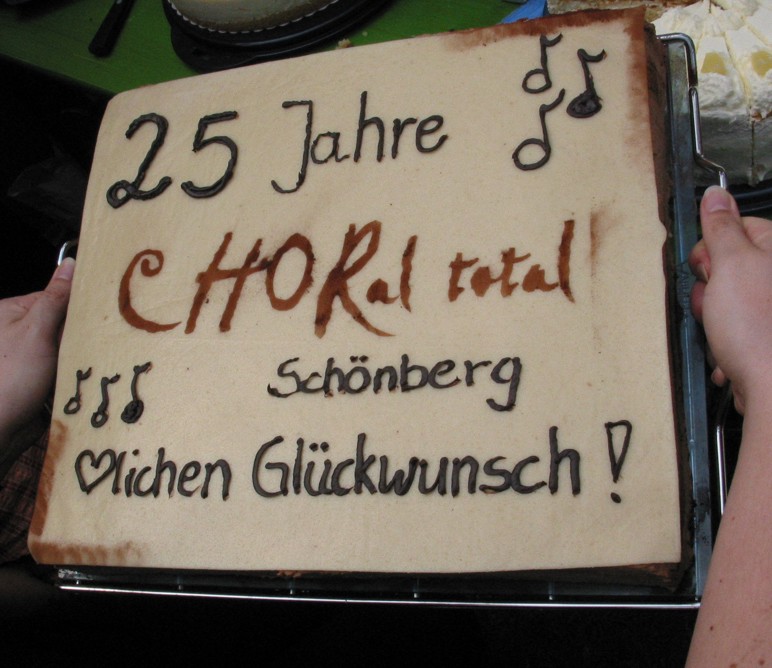 25 Jahre
CHORal total
Schönberg
♡lichen Glückwunsch!